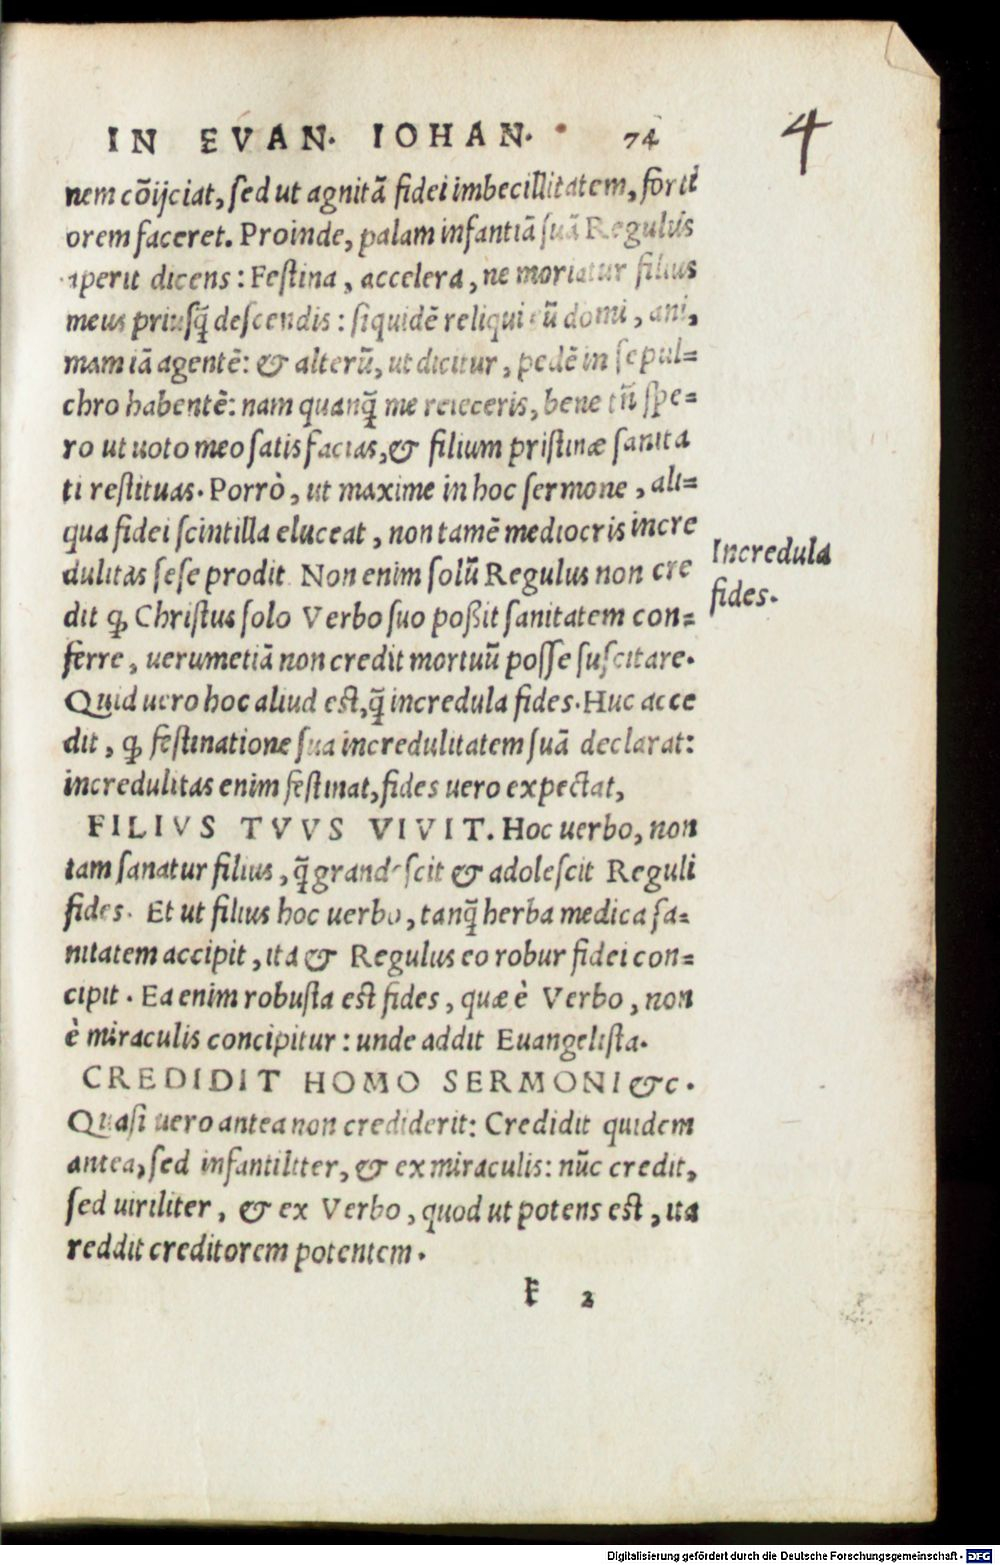 IN EVAN. IOHAN. 74
4
nem cõijciat, sed ut agnitã fidei imbecillitatem, forti
orem faceret. Proinde, palam infantiã suã Regulus
aperit dicens: Festina, accelera, ne moriatur filius
meus priusq̃ descendis: siquidẽ reliqui eũ domi, ani,
mam iã agentẽ: & alterũ, ut dicitur, pedẽ in sepul=
chro habentẽ: nam quanq̃ me reieceris, bene tñ spe=
ro ut uoto meo satis facias, & filium pristinæ sanita
ti restituas. Porrò, ut maxime in hoc sermone, ali=
qua fidei scintilla eluceat, non tamẽ mediocris incre
dulitas sese prodit. Non enim solũ Regulus non cre
dit ꝙ Christus solo Verbo suo poßit sanitatem con=
ferre, uerumetiã non credit mortuũ posse suscitare.
Quid uero hoc aliud est, q̃ incredula fides. Huc acce
dit, ꝙ festinatione sua incredulitatem suã declarat:
incredulitas enim festinat, fides uero expectat,
Incredula
fides.
FILIVS TVVS VIVIT. Hoc uerbo, non
tam sanatur filius, q̃ grandescit & adolescit Reguli
fides. Et ut filius hoc uerbo, tanq̃ herba medica sa=
nitatem accipit, ita & Regulus eo robur fidei con=
cipit. Ea enim robusta est fides, quæ è Verbo, non
è miraculis concipitur: unde addit Euangelista.
CREDIDIT HOMO SERMONI &c.
Quasi uero antea non crediderit: Credidit quidem
antea, sed infantiliter, & ex miraculis: nũc credit,
sed uiriliter, & ex Verbo, quod ut potens est, ita
reddit creditorem potentem.
k 2
Digitalisierung gefördert durch die Deutsche Forschungsgemeinschaft - DFG